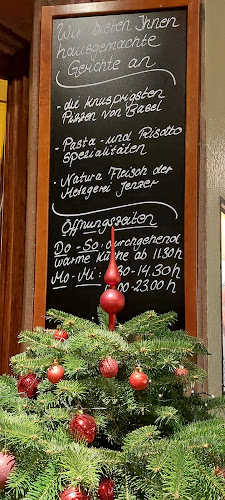 Wir bieten Ihnen
hausgemachte
Gerichte an
- die knusprigsten
Pizzen von Basel
- Pasta - und Risotto
spezialitäten
- Natura Fleisch der
Metzgerei Jenzer
Öffnungszeiten
Do - So: durchgehend
warme Küche ab 11.30h
Mo - Mi: :30 - 14.30h
:00 - 23.00h